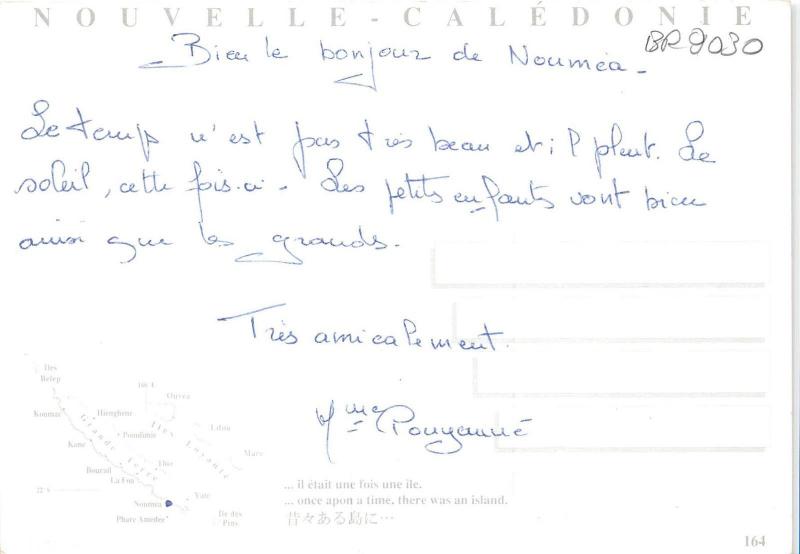 NOUVELLE-CALÉDONIE
BR9030
Bien le bonjour de Nouméa.
Le temps n'est pas très beau et il pleut. Le
soleil, cette fois-ci. Les petits enfants vont bien
ainsi que les grands.
Très amicalement.
Mme Pouyanné
Iles
Belep
166 E
Ouvea
Koumac
Hienghene
Grande Terre
Iles Loyauté
Lifou
Poindimie
Kone
Mare
Bourail
Thio
La Foa
22 S
Yate
Nouméa
Phare Amedee
Ile des
Pins
... il était une fois une île.
... once apon a time, there was an island.
昔々ある島に…
164